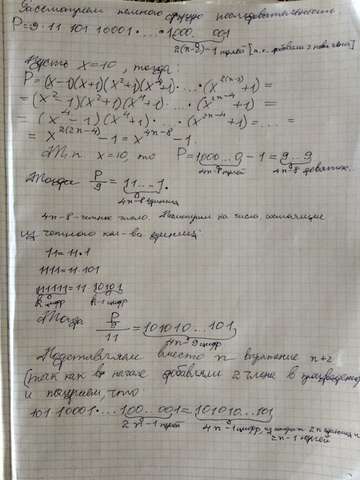 Рассмотрим немного другую последовательность:
P=9·11·101·10001·...·1000...001
2(n-3)-1 нулей [т.к. добавили 2 новых члена]
Пусть x=10, тогда:
P=(x-1)(x+1)(x²+1)(x⁴+1)·...·(x^{2(n-3)}+1)=
=(x²-1)(x²+1)(x⁴+1)·...·(x^{2n-4}+1)=
=(x⁴-1)(x⁴+1)·...·(x^{2n-4}+1)=...=
=x^{2(2n-4)}-1=x^{4n-8}-1
Т.к. x=10, то P=1000...0-1=9...9
4n-8 нулей 4n-8 девяток.
Тогда P/9=11...1.
4n-8 единица
4n-8-значное число. Посмотрим на числа, состоящие
из четного кол-ва единиц:
11=11·1
1111=11·101
111111=11·10101
k цифр k-1 цифр
Тогда P/9/11=101010...101
4n-9 цифр
Подставляем вместо n значение n+2
(так как в начале добавляли 2 члена в произведение)
и получаем, что
101·10001·...·100...001=101010...101
2n-1 нулей 4n-1 цифр, из которых 2n единиц и
2n-1 нулей